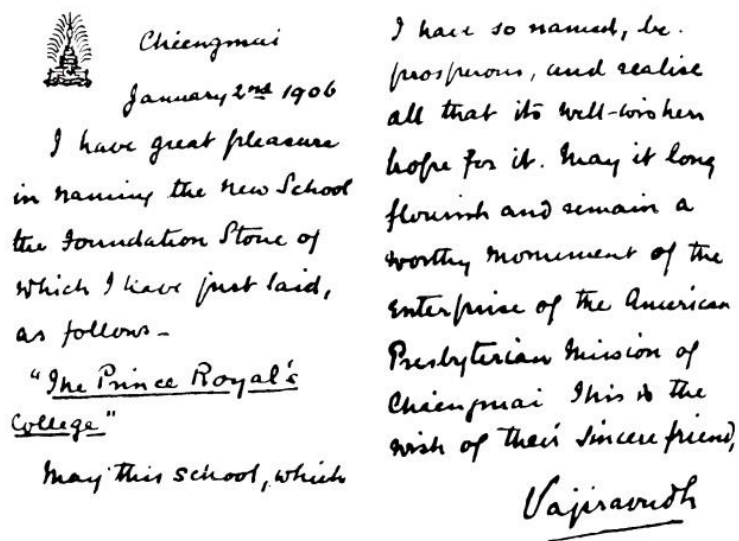 Chiengmai
January 2nd 1906
I have great pleasure
in naming the new School
the Foundation Stone of
which I have just laid,
as follows -
"The Prince Royal's
College"
May this school, which
I have so named, be
prosperous, and realise
all that its well-wishers
hope for it. May it long
flourish and remain a
worthy monument of the
enterprise of the American
Presbyterian Mission of
Chiengmai This is the
wish of their sincere friend,
Vajiravudh